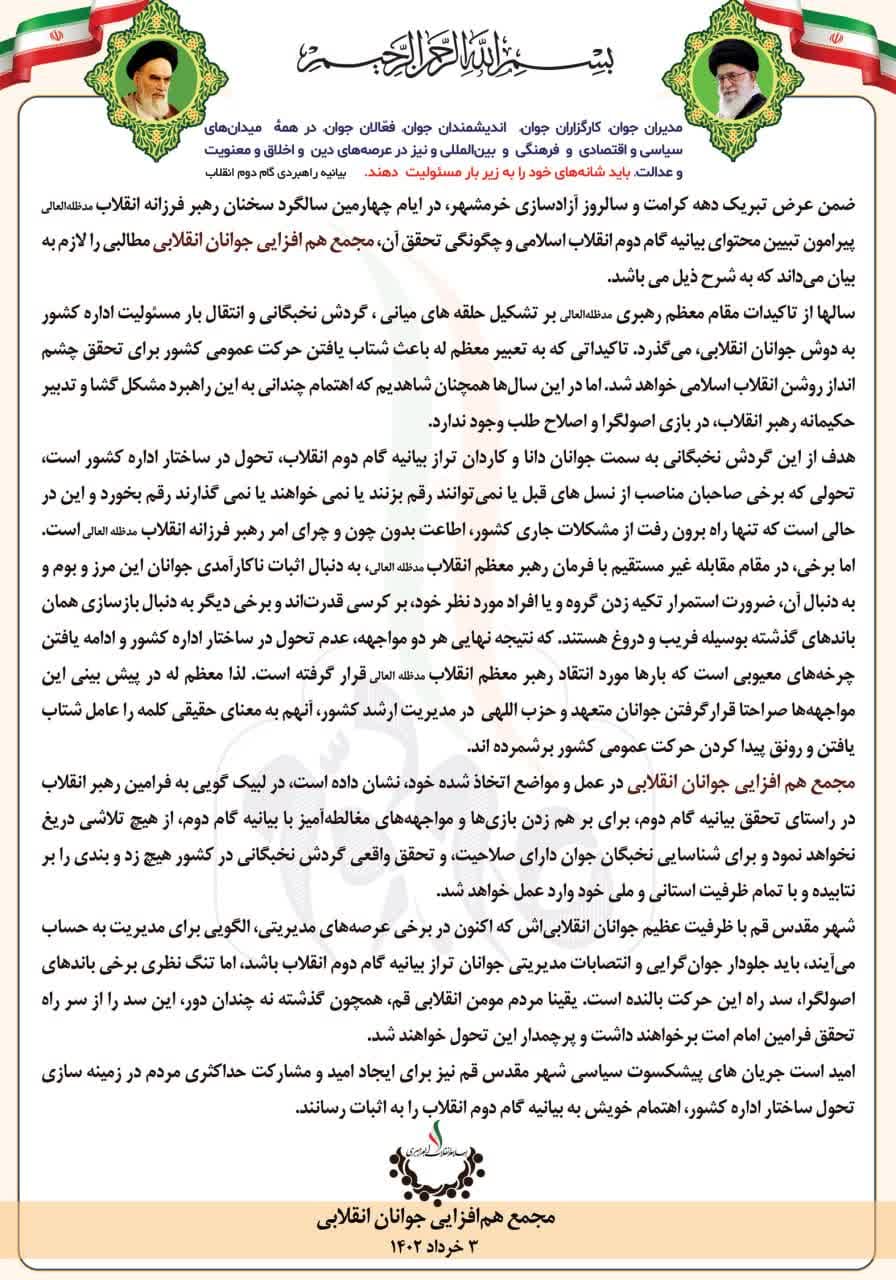 بسم الله الرحمن الرحیم
مدیران جوان، کارگزاران جوان، اندیشمندان جوان، فعّالان جوان، در همهٔ میدان‌های
سیاسی و اقتصادی و فرهنگی و بین‌المللی و نیز در عرصه‌های دین و اخلاق و معنویت
و عدالت، باید شانه‌های خود را به زیر بار مسئولیت دهند. بیانیه راهبردی گام دوم انقلاب
ضمن عرض تبریک دهه کرامت و سالروز آزادسازی خرمشهر، در ایام چهارمین سالگرد سخنان رهبر فرزانه انقلاب مدظله‌العالی
پیرامون تبیین محتوای بیانیه گام دوم انقلاب اسلامی و چگونگی تحقق آن، مجمع هم افزایی جوانان انقلابی مطالبی را لازم به
بیان می‌داند که به شرح ذیل می باشد.
سالها از تاکیدات مقام معظم رهبری مدظله‌العالی بر تشکیل حلقه های میانی ، گردش نخبگانی و انتقال بار مسئولیت اداره کشور
به دوش جوانان انقلابی، می‌گذرد. تاکیداتی که به تعبیر معظم له باعث شتاب یافتن حرکت عمومی کشور برای تحقق چشم
انداز روشن انقلاب اسلامی خواهد شد. اما در این سال‌ها همچنان شاهدیم که اهتمام چندانی به این راهبرد مشکل گشا و تدبیر
حکیمانه رهبر انقلاب، در بازی اصولگرا و اصلاح طلب وجود ندارد.
هدف از این گردش نخبگانی به سمت جوانان دانا و کاردان تراز بیانیه گام دوم انقلاب، تحول در ساختار اداره کشور است،
تحولی که برخی صاحبان مناصب از نسل های قبل یا نمی‌توانند رقم بزنند یا نمی خواهند یا نمی گذارند رقم بخورد و این در
حالی است که تنها راه برون رفت از مشکلات جاری کشور، اطاعت بدون چون و چرای امر رهبر فرزانه انقلاب مدظله العالی است.
اما برخی، در مقام مقابله غیر مستقیم با فرمان رهبر معظم انقلاب مدظله العالی، به دنبال اثبات ناکارآمدی جوانان این مرز و بوم و
به دنبال آن، ضرورت استمرار تکیه زدن گروه و یا افراد مورد نظر خود، بر کرسی قدرت‌اند و برخی دیگر به دنبال بازسازی همان
باندهای گذشته بوسیله فریب و دروغ هستند. که نتیجه نهایی هر دو مواجهه، عدم تحول در ساختار اداره کشور و ادامه یافتن
چرخه‌های معیوبی است که بارها مورد انتقاد رهبر معظم انقلاب مدظله العالی قرار گرفته است. لذا معظم له در پیش بینی این
مواجهه‌ها صراحتا قرارگرفتن جوانان متعهد و حزب اللهی در مدیریت ارشد کشور، آنهم به معنای حقیقی کلمه را عامل شتاب
یافتن و رونق پیدا کردن حرکت عمومی کشور برشمرده اند.
مجمع هم افزایی جوانان انقلابی در عمل و مواضع اتخاذ شده خود، نشان داده است، در لبیک گویی به فرامین رهبر انقلاب
در راستای تحقق بیانیه گام دوم، برای بر هم زدن بازی‌ها و مواجهه‌های مغالطه‌آمیز با بیانیه گام دوم، از هیچ تلاشی دریغ
نخواهد نمود و برای شناسایی نخبگان جوان دارای صلاحیت، و تحقق واقعی گردش نخبگانی در کشور هیچ زد و بندی را بر
نتابیده و با تمام ظرفیت استانی و ملی خود وارد عمل خواهد شد.
شهر مقدس قم با ظرفیت عظیم جوانان انقلابی‌اش که اکنون در برخی عرصه‌های مدیریتی، الگویی برای مدیریت به حساب
می‌آیند، باید جلودار جوان‌گرایی و انتصابات مدیریتی جوانان تراز بیانیه گام دوم انقلاب باشد، اما تنگ نظری برخی باندهای
اصولگرا، سد راه این حرکت بالنده است. یقینا مردم مومن انقلابی قم، همچون گذشته نه چندان دور، این سد را از سر راه
تحقق فرامین امام امت برخواهند داشت و پرچمدار این تحول خواهند شد.
امید است جریان های پیشکسوت سیاسی شهر مقدس قم نیز برای ایجاد امید و مشارکت حداکثری مردم در زمینه سازی
تحول ساختار اداره کشور، اهتمام خویش به بیانیه گام دوم انقلاب را به اثبات رسانند.
مجمع هم‌افزایی جوانان انقلابی
۳ خرداد ۱۴۰۲